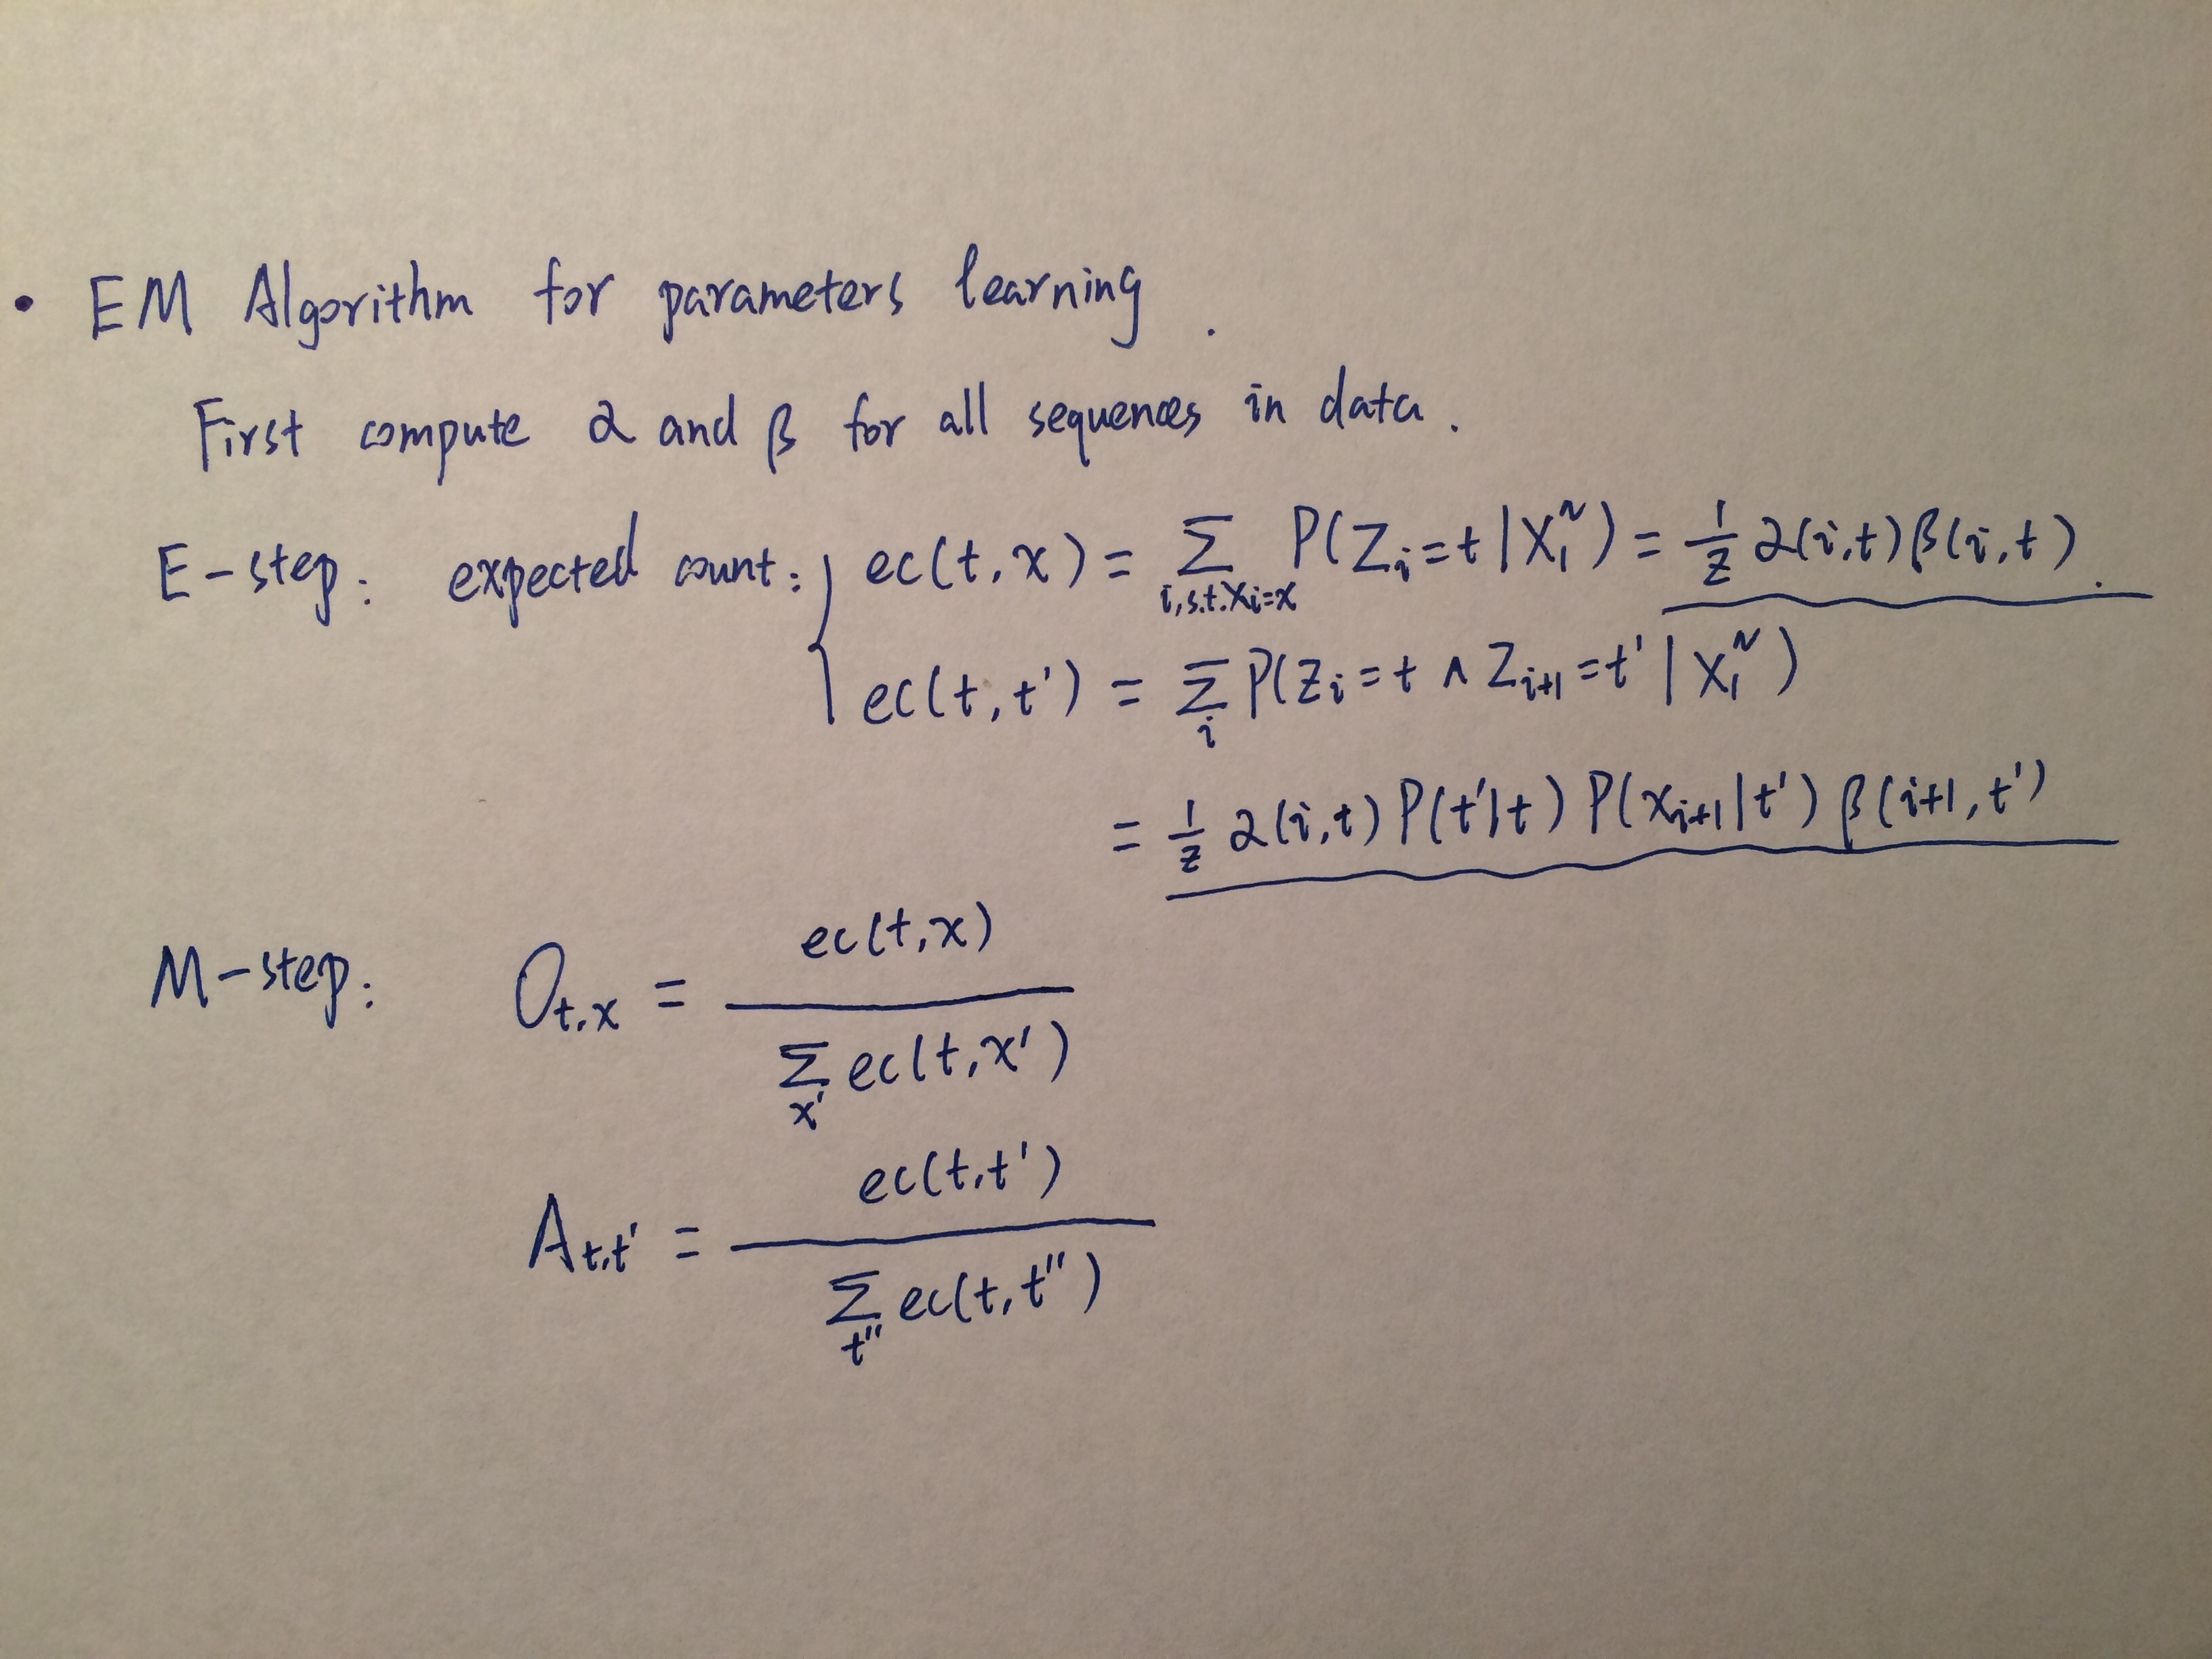 • EM Algorithm for parameters learning.
First compute α and β for all sequences in data.
E-step: expected count: { ec(t,x) = Σ_{i,s.t.Xi=x} P(Z_i=t|X_1^N) = 1/Z α(i,t)β(i,t).
ec(t,t') = Σ_i P(Z_i=t ∧ Z_{i+1}=t'|X_1^N)
= 1/Z α(i,t)P(t'|t)P(x_{i+1}|t')β(i+1,t')
M-step: O_{t,x} = ec(t,x) / Σ_{x'} ec(t,x')
A_{t,t'} = ec(t,t') / Σ_{t''} ec(t,t'')